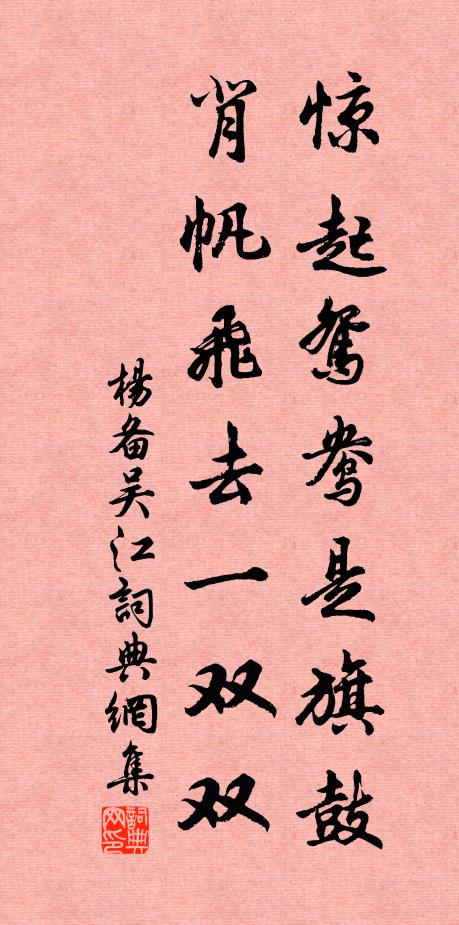 惊起鸳鸯是旗鼓
背帆飞去一双双
杨备吴江詞典網集
詞典网印